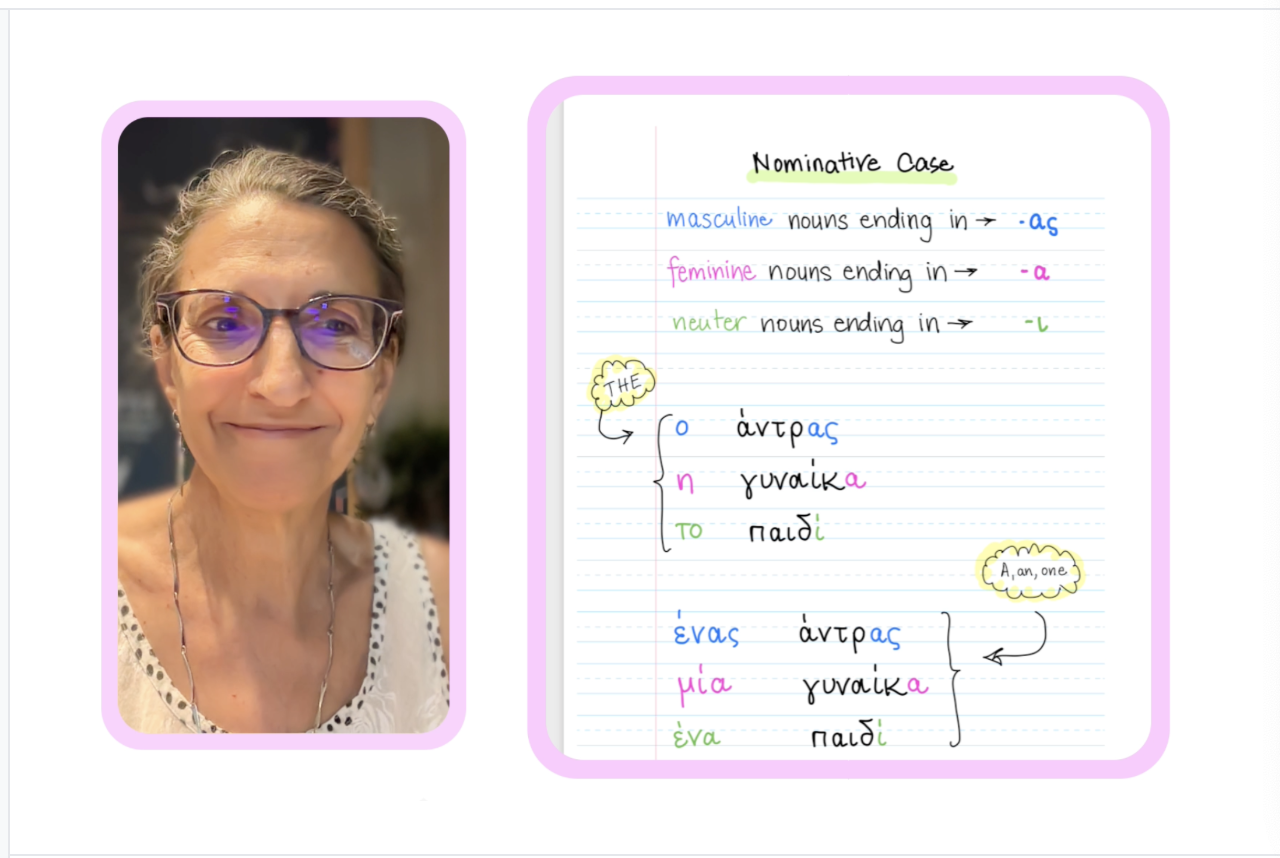 Nominative Case
masculine nouns ending in → -ας
feminine nouns ending in → -α
neuter nouns ending in → -ι
THE
ο άντρας
η γυναίκα
το παιδί
A, an, one
ένας άντρας
μία γυναίκα
ένα παιδί